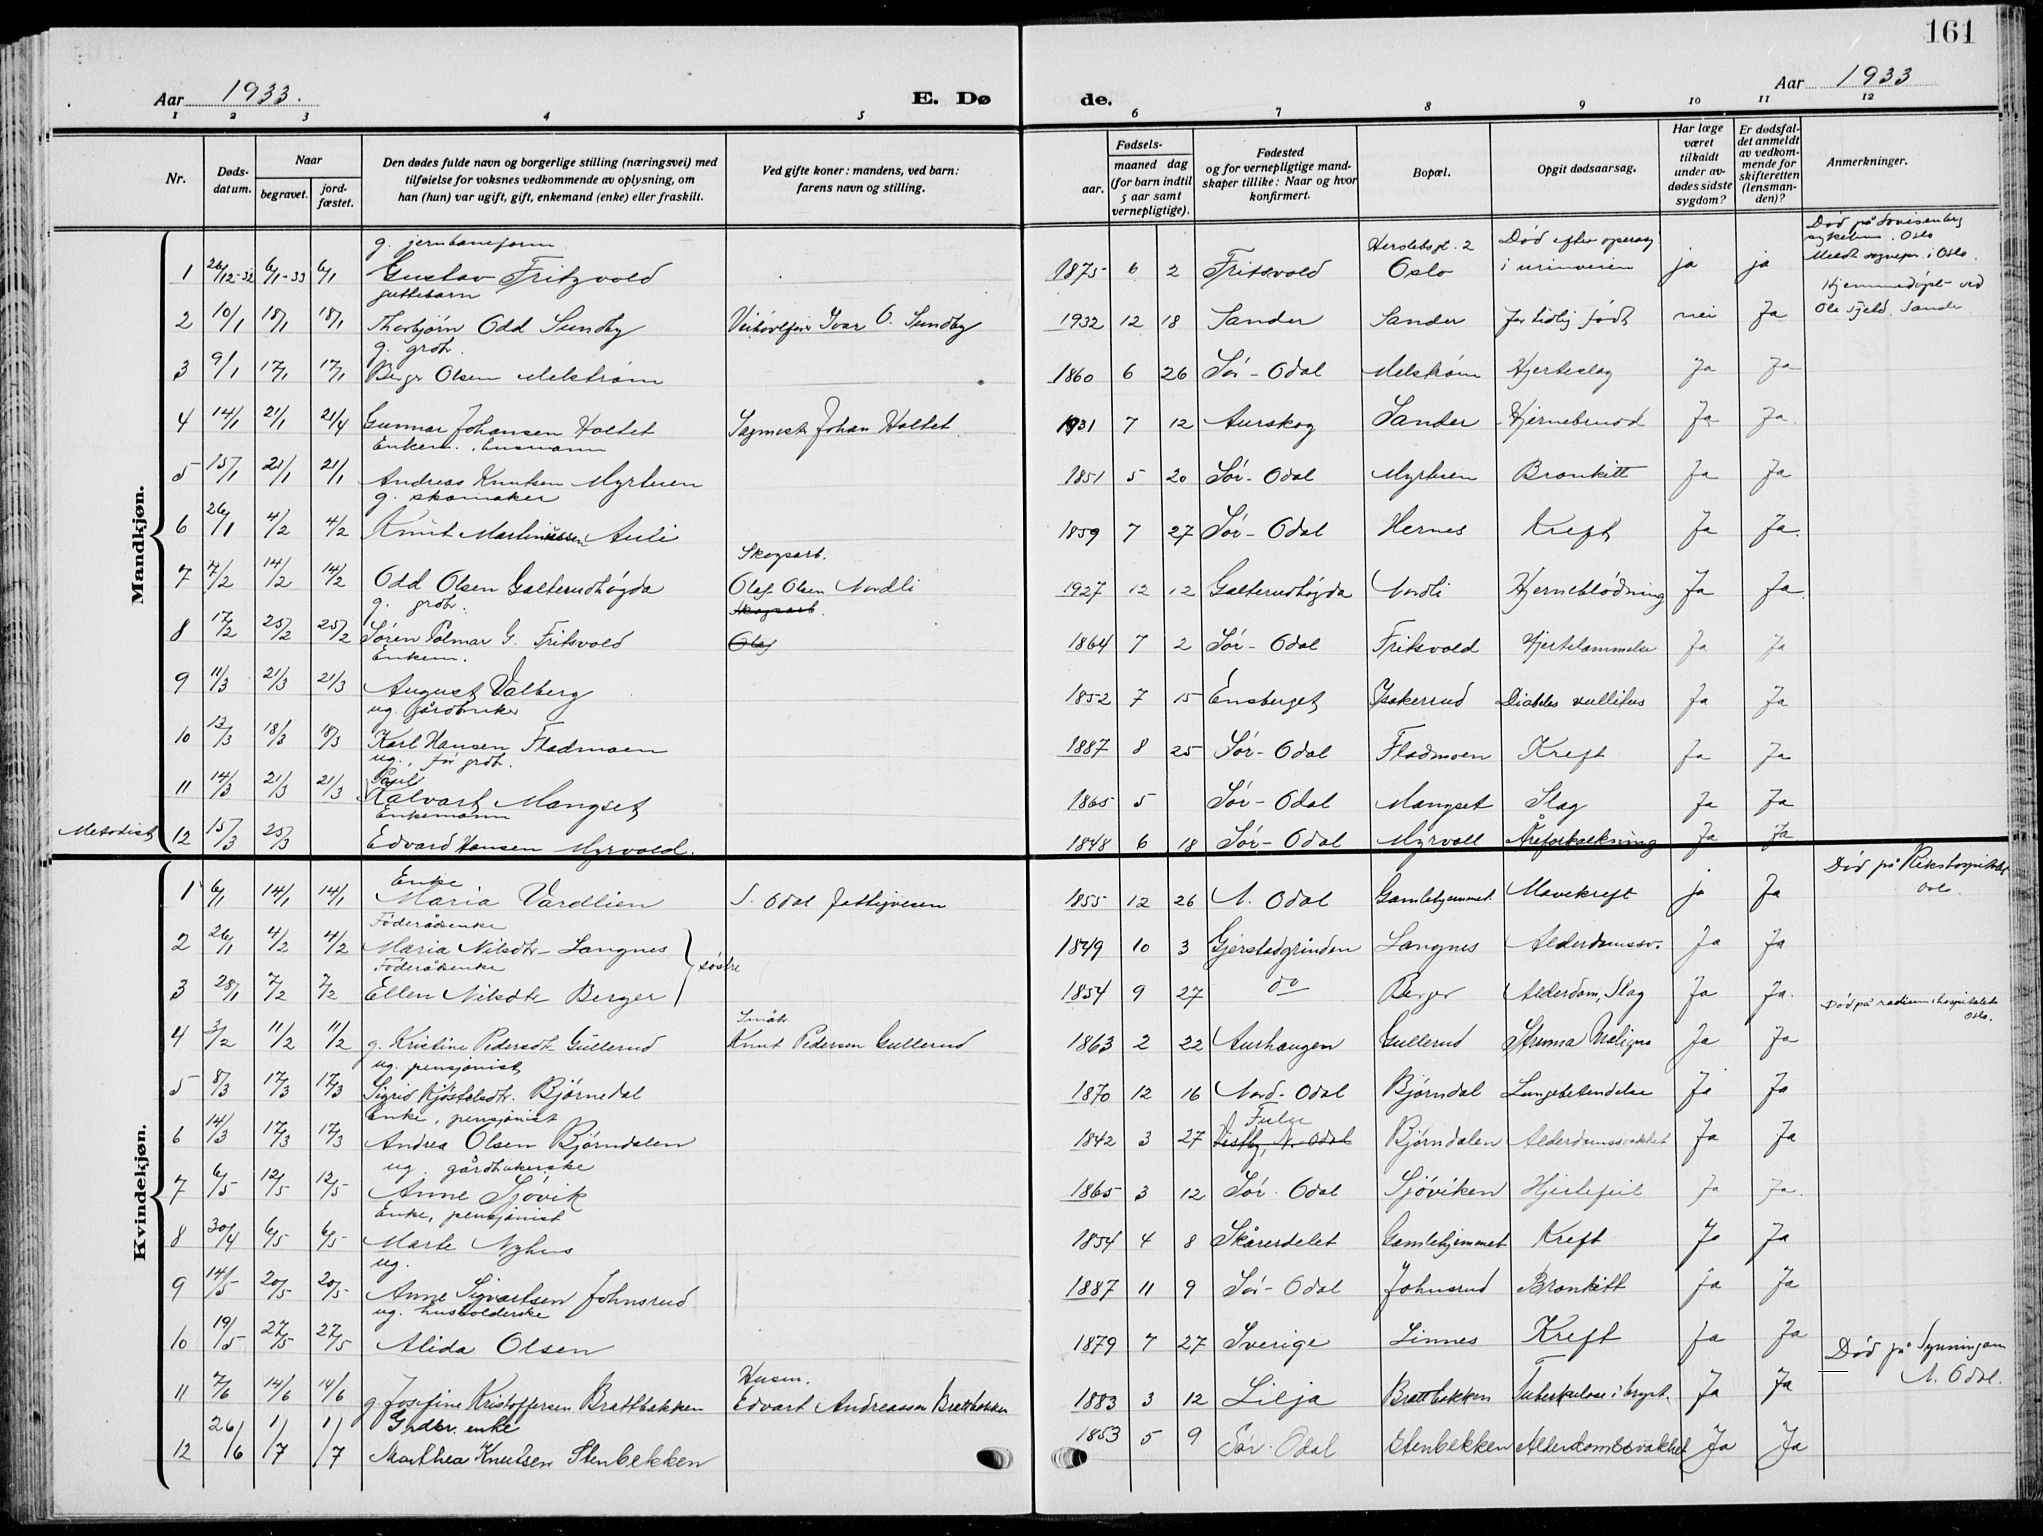 161
Aar 1933.
E. Dø
de.
Aar 1933
1 2 3 4 5 6 7 8 9 10 11 12
Nr.
Døds-datum.
Naar
begravet.
jord-fæstet.
Den dødes fulde navn og borgerlige stilling (næringsvei) med
tilføielse for voksnes vedkommende av oplysning, om
han (hun) var ugift, gift, enkemand (enke) eller fraskilt.
Ved gifte koner: mandens, ved barn:
farens navn og stilling.
Fødsels-
aar.
maaned dag
(for barn indtil
5 aar samt
vernepligtige).
Fødested
og for vernepligtige mand-
skaper tillike: Naar og hvor
konfirmert.
Bopæl.
Opgit dødsaarsag.
Har læge
været
tilkaldt
under av-
dødes sidste
sygdom?
Er dødsfal-
det anmeldt
av vedkom-
mende for
skifteretten
(lensman-
den)?
Anmerkninger.
Mandkjøn.
g. jernbaneform. Herslebsgt. 2 Død efter operasj. Død på Lovisenberg
sykehus, Oslo
1 26/12-32 6/1-33 6/1 Gustav Fritzvold 1875 6 2 Fritsvold Oslo i urinveien ja ja Meldt sognepr. i Oslo.
guttebarn Hjemmedøpt ved
2 10/1 18/1 18/1 Thorbjörn Odd Sundby Ivar O. Sundby 1932 12 18 Sander Sander for tidlig født nei Ja Ole Sjeld, Sander
g. grdbr.
3 9/1 17/1 17/1 Berger Olsen Melström 1860 6 26 Sör-Odal Melström Hjerteslag Ja Ja
4 14/1 21/1 21/4 Gunnar Johansen Holtet Sagmest. Johan Holtet 1931 7 12 Aurskog Sander Ja Ja.
Enkem. husmann
5 15/1 21/1 21/1 Andreas Knutsen Myrtuen 1851 5 20 Sör-Odal Myrtuen Bronkitt Ja Ja
g. skomaker
6 26/1 4/2 4/2 Knut Martinussen Auli 1859 7 27 Sör-Odal Hernes Kreft Ja Ja.
Skogsarb.
7 7/2 14/2 14/2 Odd Olsen Galterudhögda Olaf Olsen Nordli 1927 12 12 Galterudhögda Nordli Hjerneblödning Ja Ja
g. grdbr. Skogsarb.
8 17/2 25/2 25/2 Sören Palmar G. Fritsvold Olaf 1864 7 2 Sör-Odal Fritsvold Hjertelammelse Ja Ja
Enkem.
9 11/3 21/3 21/3 August Valberg 1852 7 15 Ensberget Isakerrud Diabetes Ja Ja
ug. gårdbruker
10 13/3 18/3 18/3 Karl Hansen Fladmoen 1887 8 25 Sör-Odal Fladmoen Kreft Ja Ja
ug., før grdb.
Paul
11 14/3 21/3 21/3 Kalvart Mangset 1865 5 Sör-Odal Mangset Slag Ja Ja
Enkemann
Metodist 12 15/3 25/3 Edvard Hansen Myrvold. 1848 6 18 Sör-Odal Myrvoll Åreforkalkning Ja Ja
Kvindekjøn.
Enke Död på Rikshospitalet
Oslo.
1 6/1 14/1 14/1 Maria Vardlien S. Odal fattigvesen 1855 12 26 N. Odal Gamlehjemmet Mavekreft ja Ja
Föderådsenke
2 26/1 4/2 4/2 Maria Nilsdtr. Langnes söstre 1849 10 3 Gjerstadgrinden Langnes Alderdomssv. Ja Ja
Föderådsenke
3 28/1 7/2 7/2 Ellen Nilsdtr Berger 1854 9 27 do Berger Alderdom, Slag Ja Ja.
Småbr. Död på radiumhospitalet
Oslo.
4 3/2 11/2 11/2 g. Kristine Pedersdtr. Gullerud Knut Pedersen Gullerud 1863 2 22 Aurhaugen Gullerud Struma Maligna Ja Ja
ug. pensjonist
5 8/3 17/3 17/3 Sigrid Kjöstelsdtr. Björnedal 1870 12 16 Nord-Odal Björndal Lungebetendelse Ja Ja
Enke, pensjonist Fulu
6 14/3 17/3 17/3 Andrea Olsen Björndalen 1842 3 27 Vestby, N. Odal Björndalen Alderdomssvakhet Ja Ja
ug. gårdbrukerske
7 6/5 12/5 12/5 Anne Sjövik 1865 3 12 Sör-Odal Sjöviken Hjertefeil Ja Ja.
Enke, pensjonist
8 30/4 6/5 6/5 Marte Nyhus 1854 4 8 Skårerdelet Gamlehjemmet Kreft Ja Ja
ug.
9 14/5 20/5 20/5 Anne Sigvartsen Johnsrud 1887 11 9 Sör-Odal Johnsrud Bronkitt Ja Ja
ug. husholderske
10 19/5 27/5 27/5 Alida Olsen 1879 7 27 Sverige Linnes Kreft Ja Ja
Husm. Död på
N. Odal.
11 7/6 14/6 14/6 g. Josefine Kristoffersen Brattbakken Edvart Andreassen Brattbakken 1883 3 12 Lilja Brattbakken Tuberkulose i bryst. Ja Ja
Grdbr. enke
12 26/6 1/7 1/7 Marthea Knutsen Stenbekken 1853 5 9 Sør-Odal Stenbekken Alderdomssvakhet Ja Ja